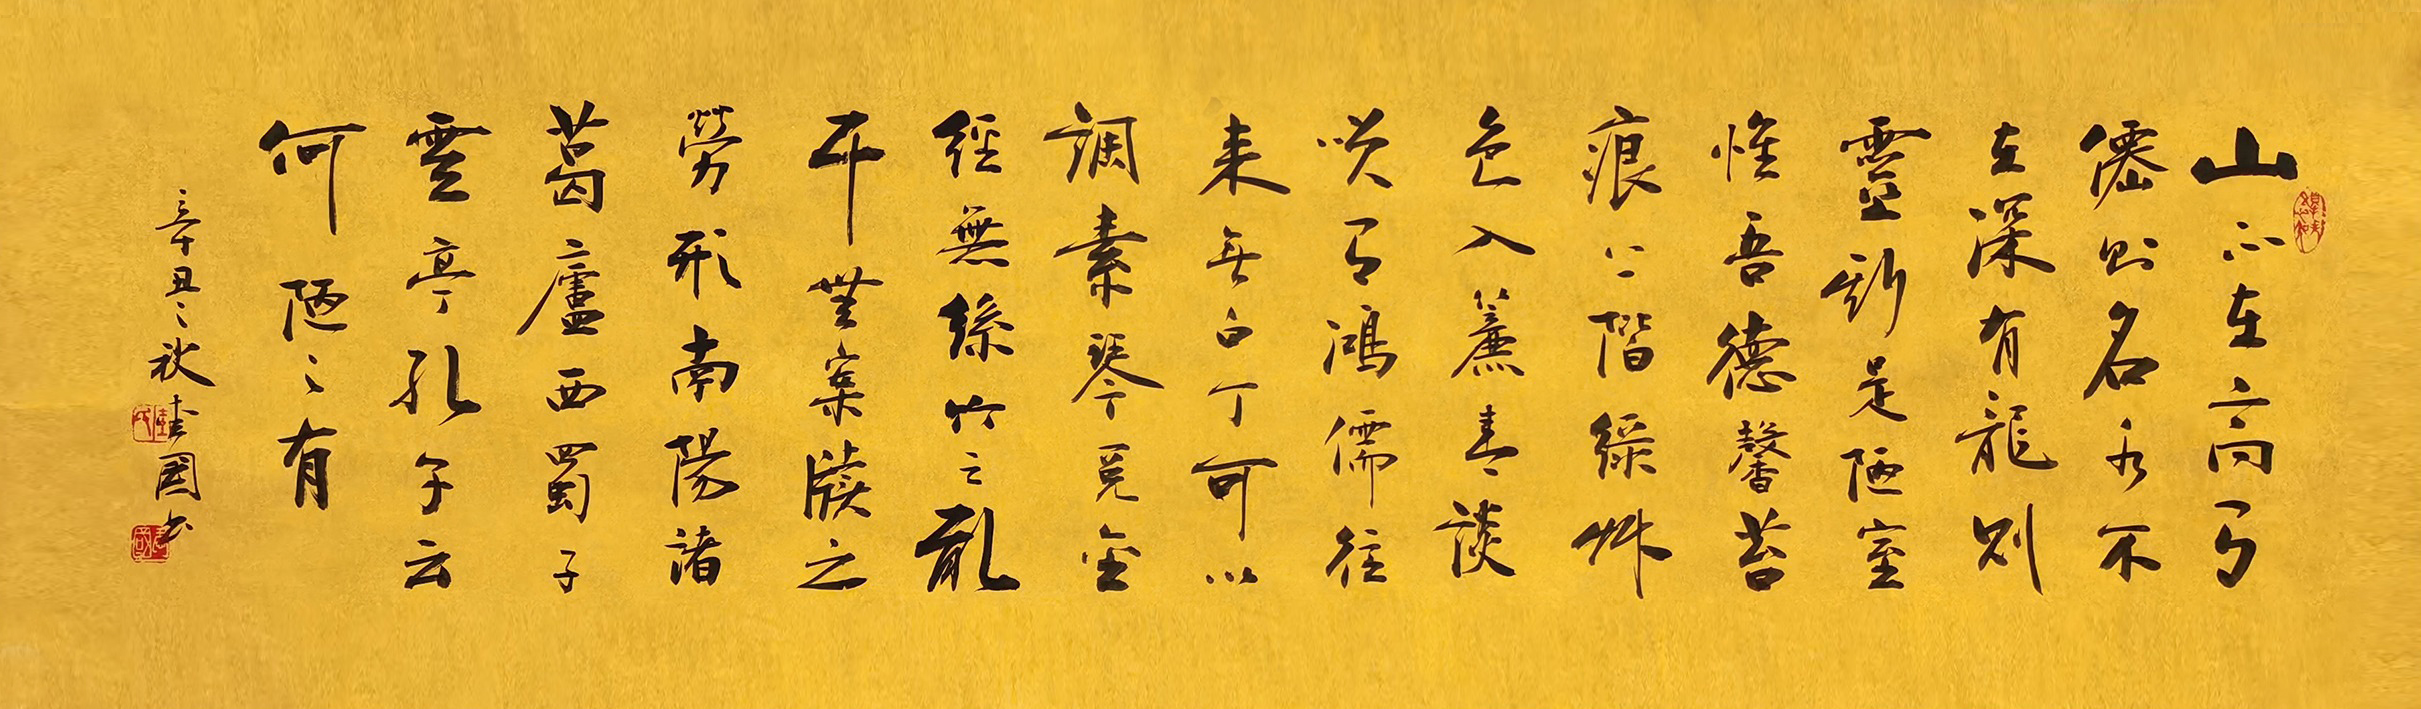 山不在高有
僊則名水不
在深有龍則
靈斯是陋室
惟吾德馨苔
痕上階綠艸
色入簾青談
咲有鴻儒往
来無白丁可以
調素琴閱金
經無絲竹之亂
耳無案牘之
勞形南陽諸
葛廬西蜀子
雲亭孔子云
何陋之有
辛丑之秋圭國书